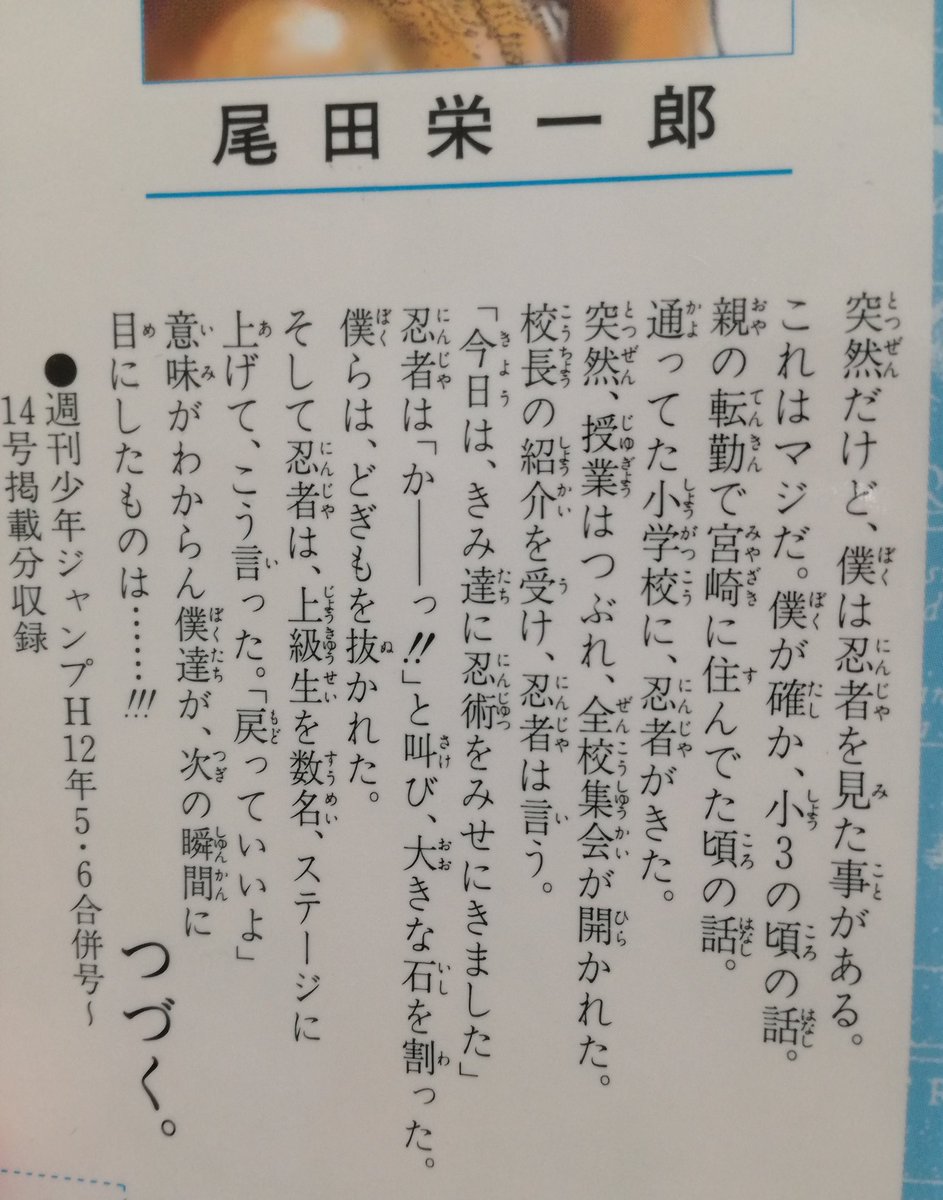 尾田栄一郎
突然だけど、僕は忍者を見た事がある。
これはマジだ。僕が確か、小3の頃の話。
親の転勤で宮崎に住んでた頃の話。
通ってた小学校に、忍者がきた。
突然、授業はつぶれ、全校集会が開かれた。
校長の紹介を受け、忍者は言う。
「今日は、きみ達に忍術をみせにきました」
忍者は「か――っ!!」と叫び、大きな石を割った。
僕らは、どぎもを抜かれた。
そして忍者は、上級生を数名、ステージに
上げて、こう言った。「戻っていいよ」
意味がわからん僕達が、次の瞬間に
目にしたものは………!!!
つづく。
●週刊少年ジャンプH12年5・6合併号~
14号掲載分収録